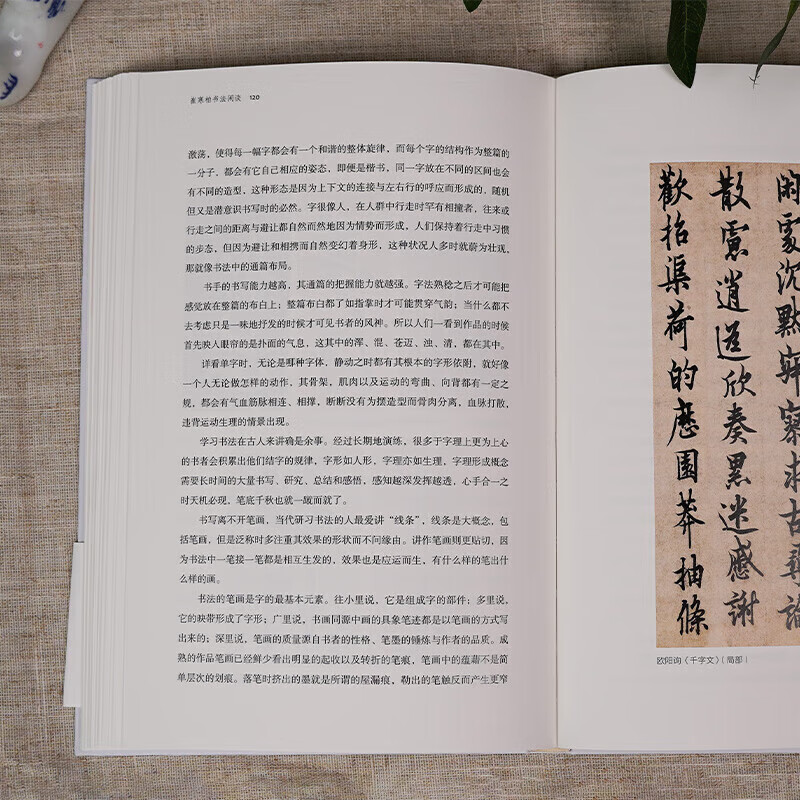 崔寒柏书法闲谈 120
激荡,使得每一幅字都会有一个和谐的整体旋律,而每个字的结构作为整篇的
一分子,都会有它自己相应的姿态,即便是楷书,同一字放在不同的区间也会
有不同的造型,这种形态是因为上下文的连接与左右行的呼应而形成的,随机
但又是潜意识书写时的必然。字很像人,在人群中行走时罕有相撞者,往来或
行走之间的距离与避让都自然而然地因为情势而形成,人们保持着行走中习惯
的步态,但因为避让和相携而自然变幻着身形,这种状况人多时就蔚为壮观,
那就像书法中的通篇布局。
书手的书写能力越高,其通篇的把握能力就越强。字法熟稔之后才可能把
感觉放在整篇的布白上;整篇布白都了如指掌时才可能贯穿气韵;当什么都不
去考虑只是一味地抒发的时候才可见书者的风神。所以人们一看到作品的时候
首先映人眼帘的是扑面的气息,这其中的浑、混、苍迈、浊、清,都在其中。
详看单字时,无论是哪种字体,静动之时都有其根本的字形依附,就好像
一个人无论做怎样的动作,其骨架,肌肉以及运动的弯曲、向背都有一定之
规,都会有气血筋脉相连、相撑,断断没有为摆造型而骨肉分离,血脉打散,
违背运动生理的情景出现。
学习书法在古人来讲确是余事。经过长期地演练,很多于字理上更为上心
的书者会积累出他们结字的规律,字形如人形,字理亦如生理,字理形成概念
需要长时间的大量书写、研究、总结和感悟,感知越深发挥越透,心手合一之
时天机必现,笔底千秋也就一蹴而就了。
书写离不开笔画,当代研习书法的人最爱讲“线条”,线条是大概念,包
括笔画,但是泛称时多注重其效果的形状而不问缘由。讲作笔画则更贴切,因
为书法中一笔接一笔都是相互生发的,效果也是应运而生,有什么样的笔出什
么样的画。
书法的笔画是字的最基本元素。往小里说,它是组成字的部件;多里说,
它的映带形成了字形;广里说,书画同源中画的具象笔迹都是以笔画的方式写
出来的;深里说,笔画的质量源自书者的性格、笔墨的锤炼与作者的品质。成
熟的作品笔画已经鲜少看出明显的起收以及转折的笔痕,笔画中的蕴藉不是简
单层次的划痕。落笔时挤出的墨就是所谓的屋漏痕,勒出的笔触反而产生更窄
闲处沉默寂寥求古寻论
散虑逍遥欣奏累遣感谢
欢招渠荷的历园莽抽条
欧阳询《千字文》(局部)